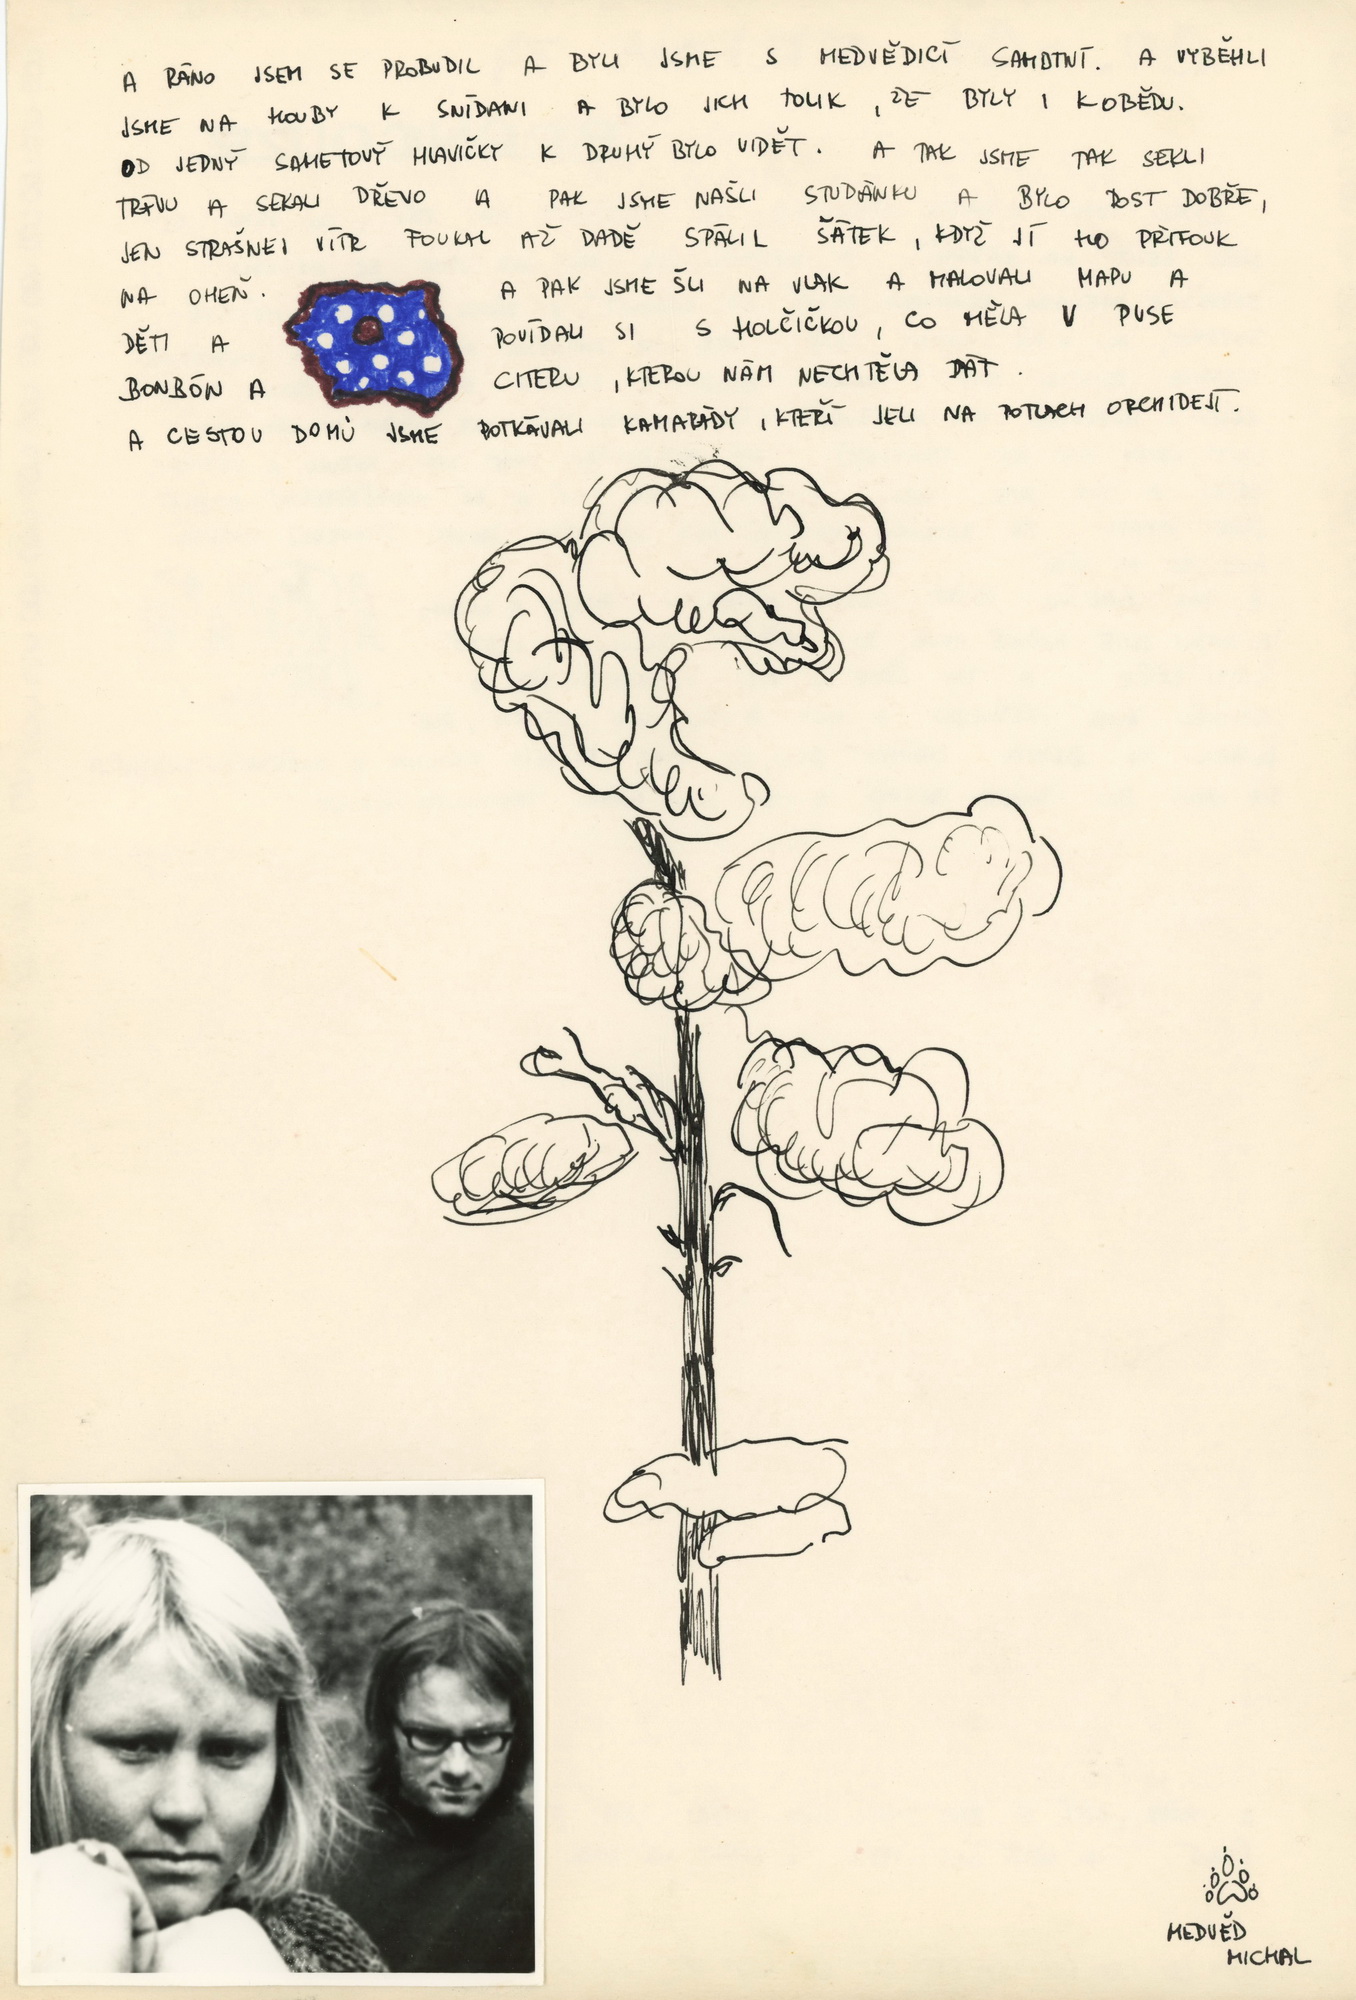 A RÁNO JSEM SE PROBUDIL A BYLI JSME S MEDVĚDICÍ SAMOTNÍ. A VYBĚHLI
JSME NA HOUBY K SNÍDANI A BYLO JICH TOLIK, ŽE BYLY I K OBĚDU.
OD JEDNÝ SAMETOVÝ HLAVIČKY K DRUHÝ BYLO VIDĚT. A TAK JSME TAK SEKLI
TRÁVU A SEKALI DŘEVO A PAK JSME NAŠLI STUDÁNKU A BYLO DOST DOBŘE,
JEN STRAŠNEJ VÍTR FOUKAL AŽ DADĚ SPÁLIL ŠÁTEK, KDYŽ JÍ HO PŘIFOUK
NA OHEŇ. A PAK JSME ŠLI NA VLAK A MALOVALI MAPU A
DĚTI A POVÍDALI SI S HOLČIČKOU, CO MĚLA V PUSE
BONBÓN A CITERU, KTEROU NÁM NECHTĚLA DÁT.
A CESTOU DOMŮ JSME POTKÁVALI KAMARÁDY, KTEŘÍ JELI NA POTLACH ORCHIDEJÍ.
MEDVĚD
MICHAL